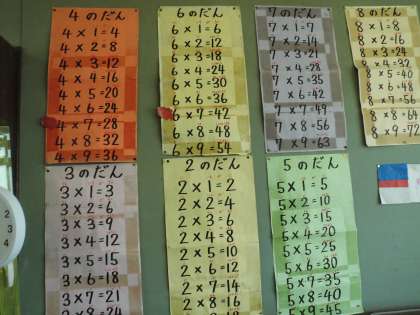 4のだん
4×1=4
4×2=8
4×3=12
4×4=16
4×5=20
4×6=24
4×7=28
4×8=32
4×9=36
6のだん
6×1=6
6×2=12
6×3=18
6×4=24
6×5=30
6×6=36
6×7=42
6×8=48
6×9=54
7のだん
7×1=7
7×2=14
7×3=21
7×4=28
7×5=35
7×6=42
7×7=49
7×8=56
7×9=63
8のだん
8×1=8
8×2=16
8×3=24
8×4=32
8×5=40
8×6=48
8×7=56
8×8=64
8×9=72
3のだん
3×1=3
3×2=6
3×3=9
3×4=12
3×5=15
3×6=18
3×7=21
3×8=24
2のだん
2×1=2
2×2=4
2×3=6
2×4=8
2×5=10
2×6=12
2×7=14
2×8=16
5のだん
5×1=5
5×2=10
5×3=15
5×4=20
5×5=25
5×6=30
5×7=35
5×8=40
5×9=45
2
3
4